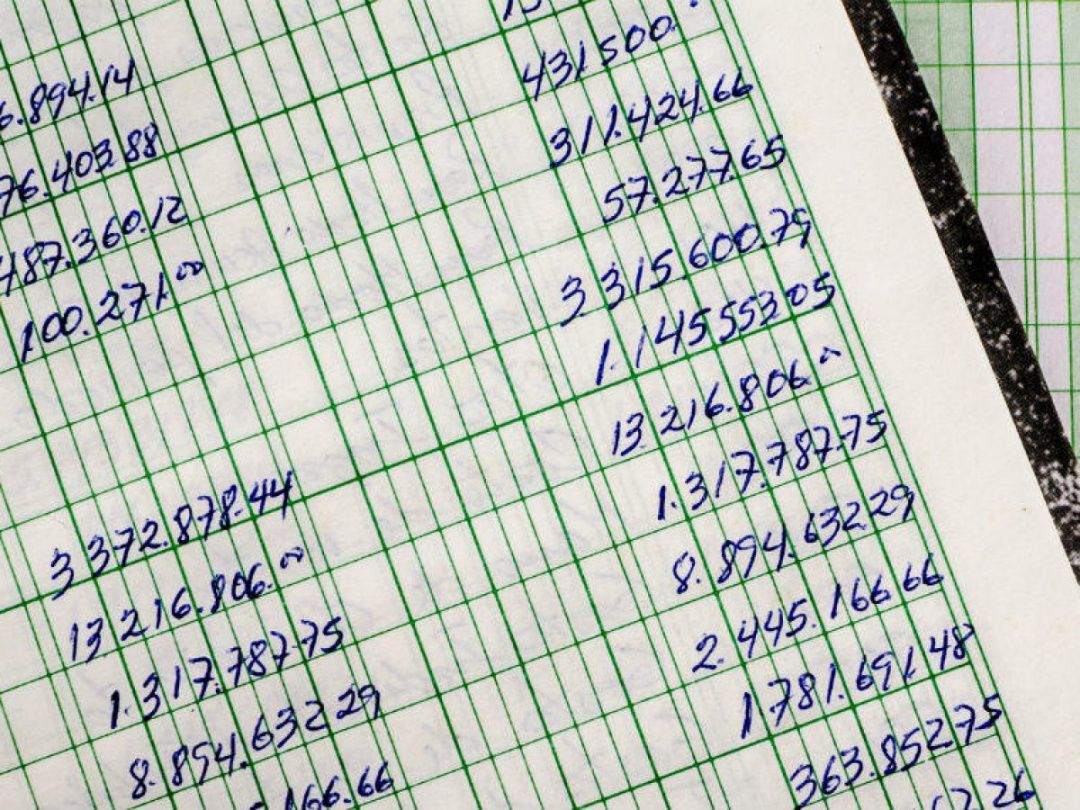 6.894.14
76.403.88
487.360.12
100.271.00
3 372.878.44
13 216.806.00
1.317.787.75
8.894.632 29
166.66
431.500.
311.424.66
57.277.65
3 315.600.79
1.145 553 05
13.216.806.00
1.317.787.75
8.894.632 29
2.445.166 66
1 781.691.48
363.852 75